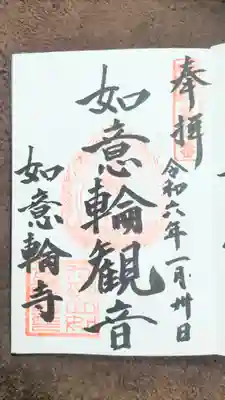 奉拝
令和六年一月卅日
如意輪観音
如意輪寺